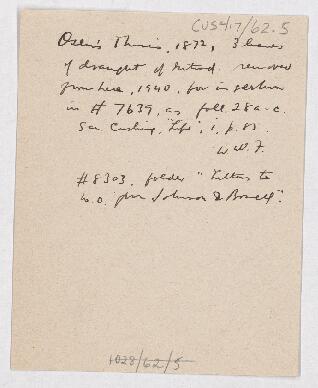 CUS417/62.5
Osler's Thesis, 1872, 3 leaves
of draught of introd. removed
from here, 1940, for insertion
in # 7639, as foll. 28 a-c.
See Cushing, "Life", i, p. 85.
W.W.F.
#8303, folder "Letters to
W.O. from Johnson & Bovell".
1028/62/5